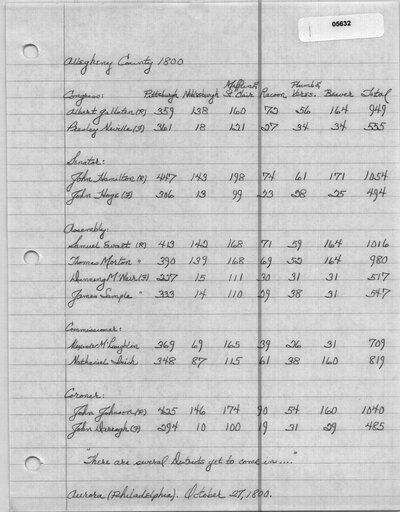 05632
Allegheny County 1800
Mifflin & Plumb &
Congress: Pittsburgh Noblesburgh St. Clair Racoon Vires. Beaver Total
Albert Gallatin (R) 359 138 160 72 56 164 949
Presley Neville (F) 361 18 121 27 34 34 555
Senator:
John Hamilton (R) 447 143 198 74 61 171 1054
John Hoge (F) 306 13 99 23 28 25 494
Assembly:
Samuel Ewalt (R) 413 142 168 71 59 164 1016
Thomas Morton " 390 139 168 69 52 164 980
Dunning McNair (F) 227 15 111 30 31 31 517
James Sample " 333 14 110 29 38 31 547
Commissioner:
Alexander McLaughlin 369 69 165 39 26 31 709
Nathaniel Irish 348 87 115 61 38 160 819
Coroner:
John Johnson (R) 425 146 174 90 54 160 1040
John Darragh (F) 294 10 100 19 31 29 485
"There are several Districts yet to come in...."
Aurora (Philadelphia). October 27, 1800.